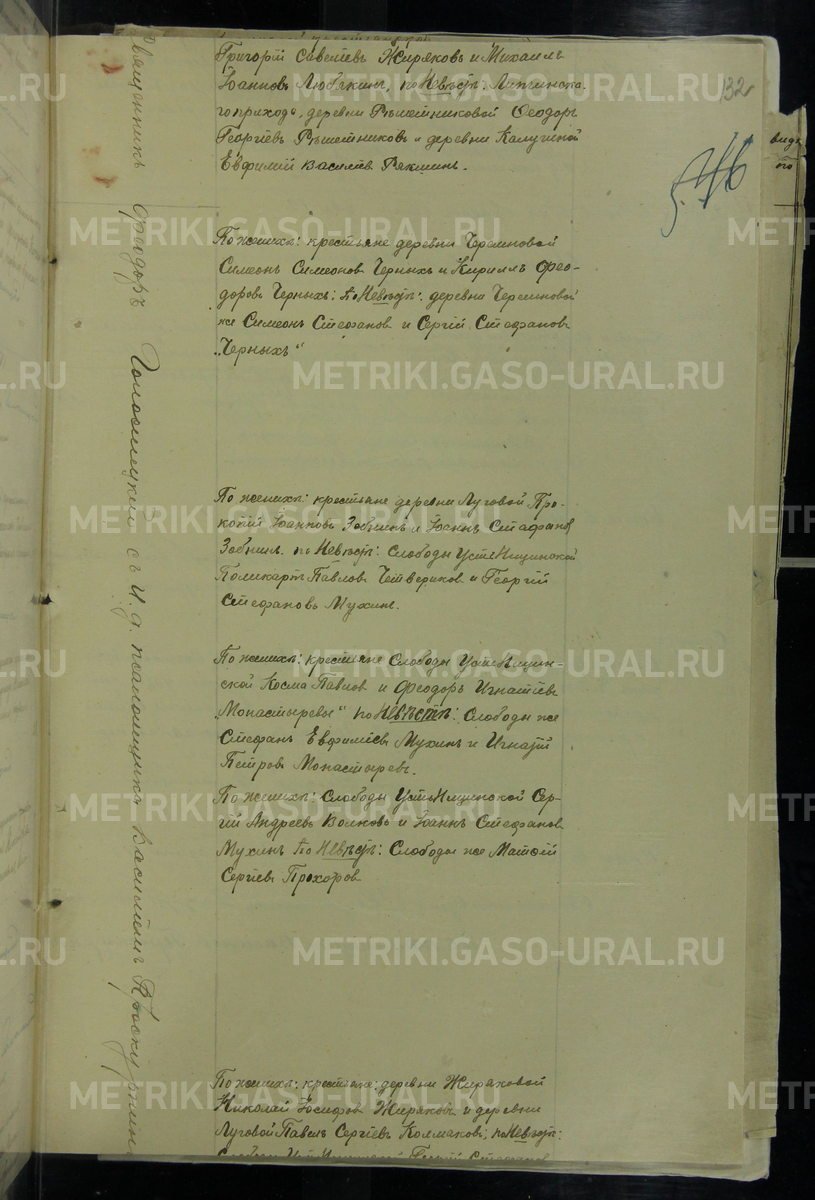 132
Григорій Савеліевъ Жиряковъ и Михаилъ
Іоанновъ Любякинъ, по Невѣстѣ: Липчинска-
го прихода, деревни Рѣшетниковой Ѳеодоръ
Георгіевъ Рѣшетниковъ и деревни Калугиной
Евфимій Василіевъ Рякшинъ.
По женихѣ: крестьяне деревни Черемновой
Симеонъ Симеоновъ Черныхъ и Кириллъ Ѳео-
доровъ Черныхъ; по Невѣстѣ: деревни Черемновой
же Симеонъ Стефановъ и Сергій Стефановъ
„Черныхъ“
По женихѣ: крестьяне деревни Луговой Про-
копій Іоанновъ Зобнинъ и Іоаннъ Стефановъ
Зобнинъ. по Невѣстѣ: Слободы Усть Ницинской
Поликарпъ Павловъ Четвериковъ и Георгій
Стефановъ Мухинъ.
По женихѣ: крестьяне Слободы Усть Ницин-
ской Косма Павловъ и Ѳеодоръ Игнатіевъ
„Монастыревы“ по Невѣстѣ: Слободы же
Стефанъ Евфиміевъ Мухинъ и Игнатій
Петровъ Монастыревъ.
По женихѣ: Слободы Усть Ницинской Сер-
гій Андреевъ Волковъ и Іоаннъ Стефановъ
Мухинъ по Невѣстѣ: Слободы же Матѳій
Сергіевъ Прохоровъ
По женихѣ: крестьяне: деревни Жиряковой
Николай Іосифовъ Жиряковъ и деревни
Луговой Павелъ Сергіевъ Колмаковъ; по Невѣстѣ:
Священникъ Ѳеодоръ Головицкій съ И. д. псаломщика Василіемъ Проскурнинымъ
METRIKI.GASO-URAL.RU